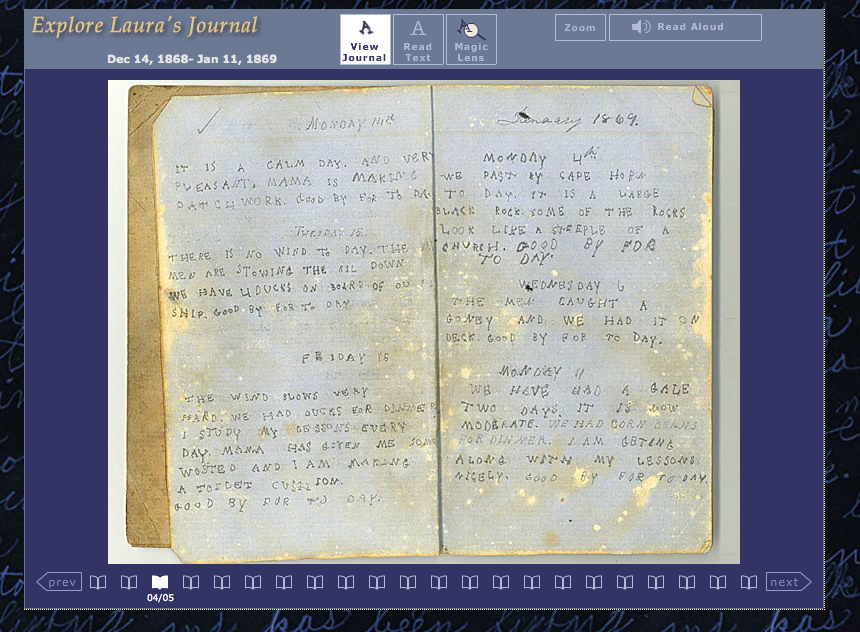 Explore Laura's Journal
Dec 14, 1868- Jan 11, 1869
View Journal
Read Text
Magic Lens
Zoom
Read Aloud
MONDAY 14th
IT IS A CALM DAY. AND VERY
PLEASANT, MAMA IS MAKING
PATCHWORK. GOOD BY FOR TO DA
TUESDAY 15
THERE IS NO WIND TO DAY. THE
MEN ARE STOWING THE OIL DOWN.
WE HAVE 4 DUCKS ON BOARD OF OU
SHIP. GOOD BY FOR TO DAY
FRIDAY 18
THE WIND BLOWS VERY
HARD. WE HAD DUCKS FOR DINNER
I STUDY MY LESSONS EVERY
DAY. MAMA HAS GIVEN ME SOM
WOSTED AND I AM MAKING
A TOILET CUSHSON.
GOOD BY FOR TO DAY.
January 1869.
MONDAY 4th
WE PAST BY CAPE HORN
TO DAY. IT IS A LARGE
BLACK ROCK. SOME OF THE ROCKS
LOOK LIKE A STEEPLE OF A
CHURCH. GOOD BY FOR
TO DAY.
WEDNESDAY 6
THE MEN CAUGHT A
GONEY AND WE HAD IT ON
DECK GOOD BY FOR TO DAY.
MONDAY 11
WE HAVE HAD A GALE
TWO DAYS. IT IS NOW
MODERATE. WE HAD CORN BEANS
FOR DINNER. I AM GETING
ALONG WITH MY LESSONS
NICELY. GOOD BY FOR TO DAY.
prev
04/05
next